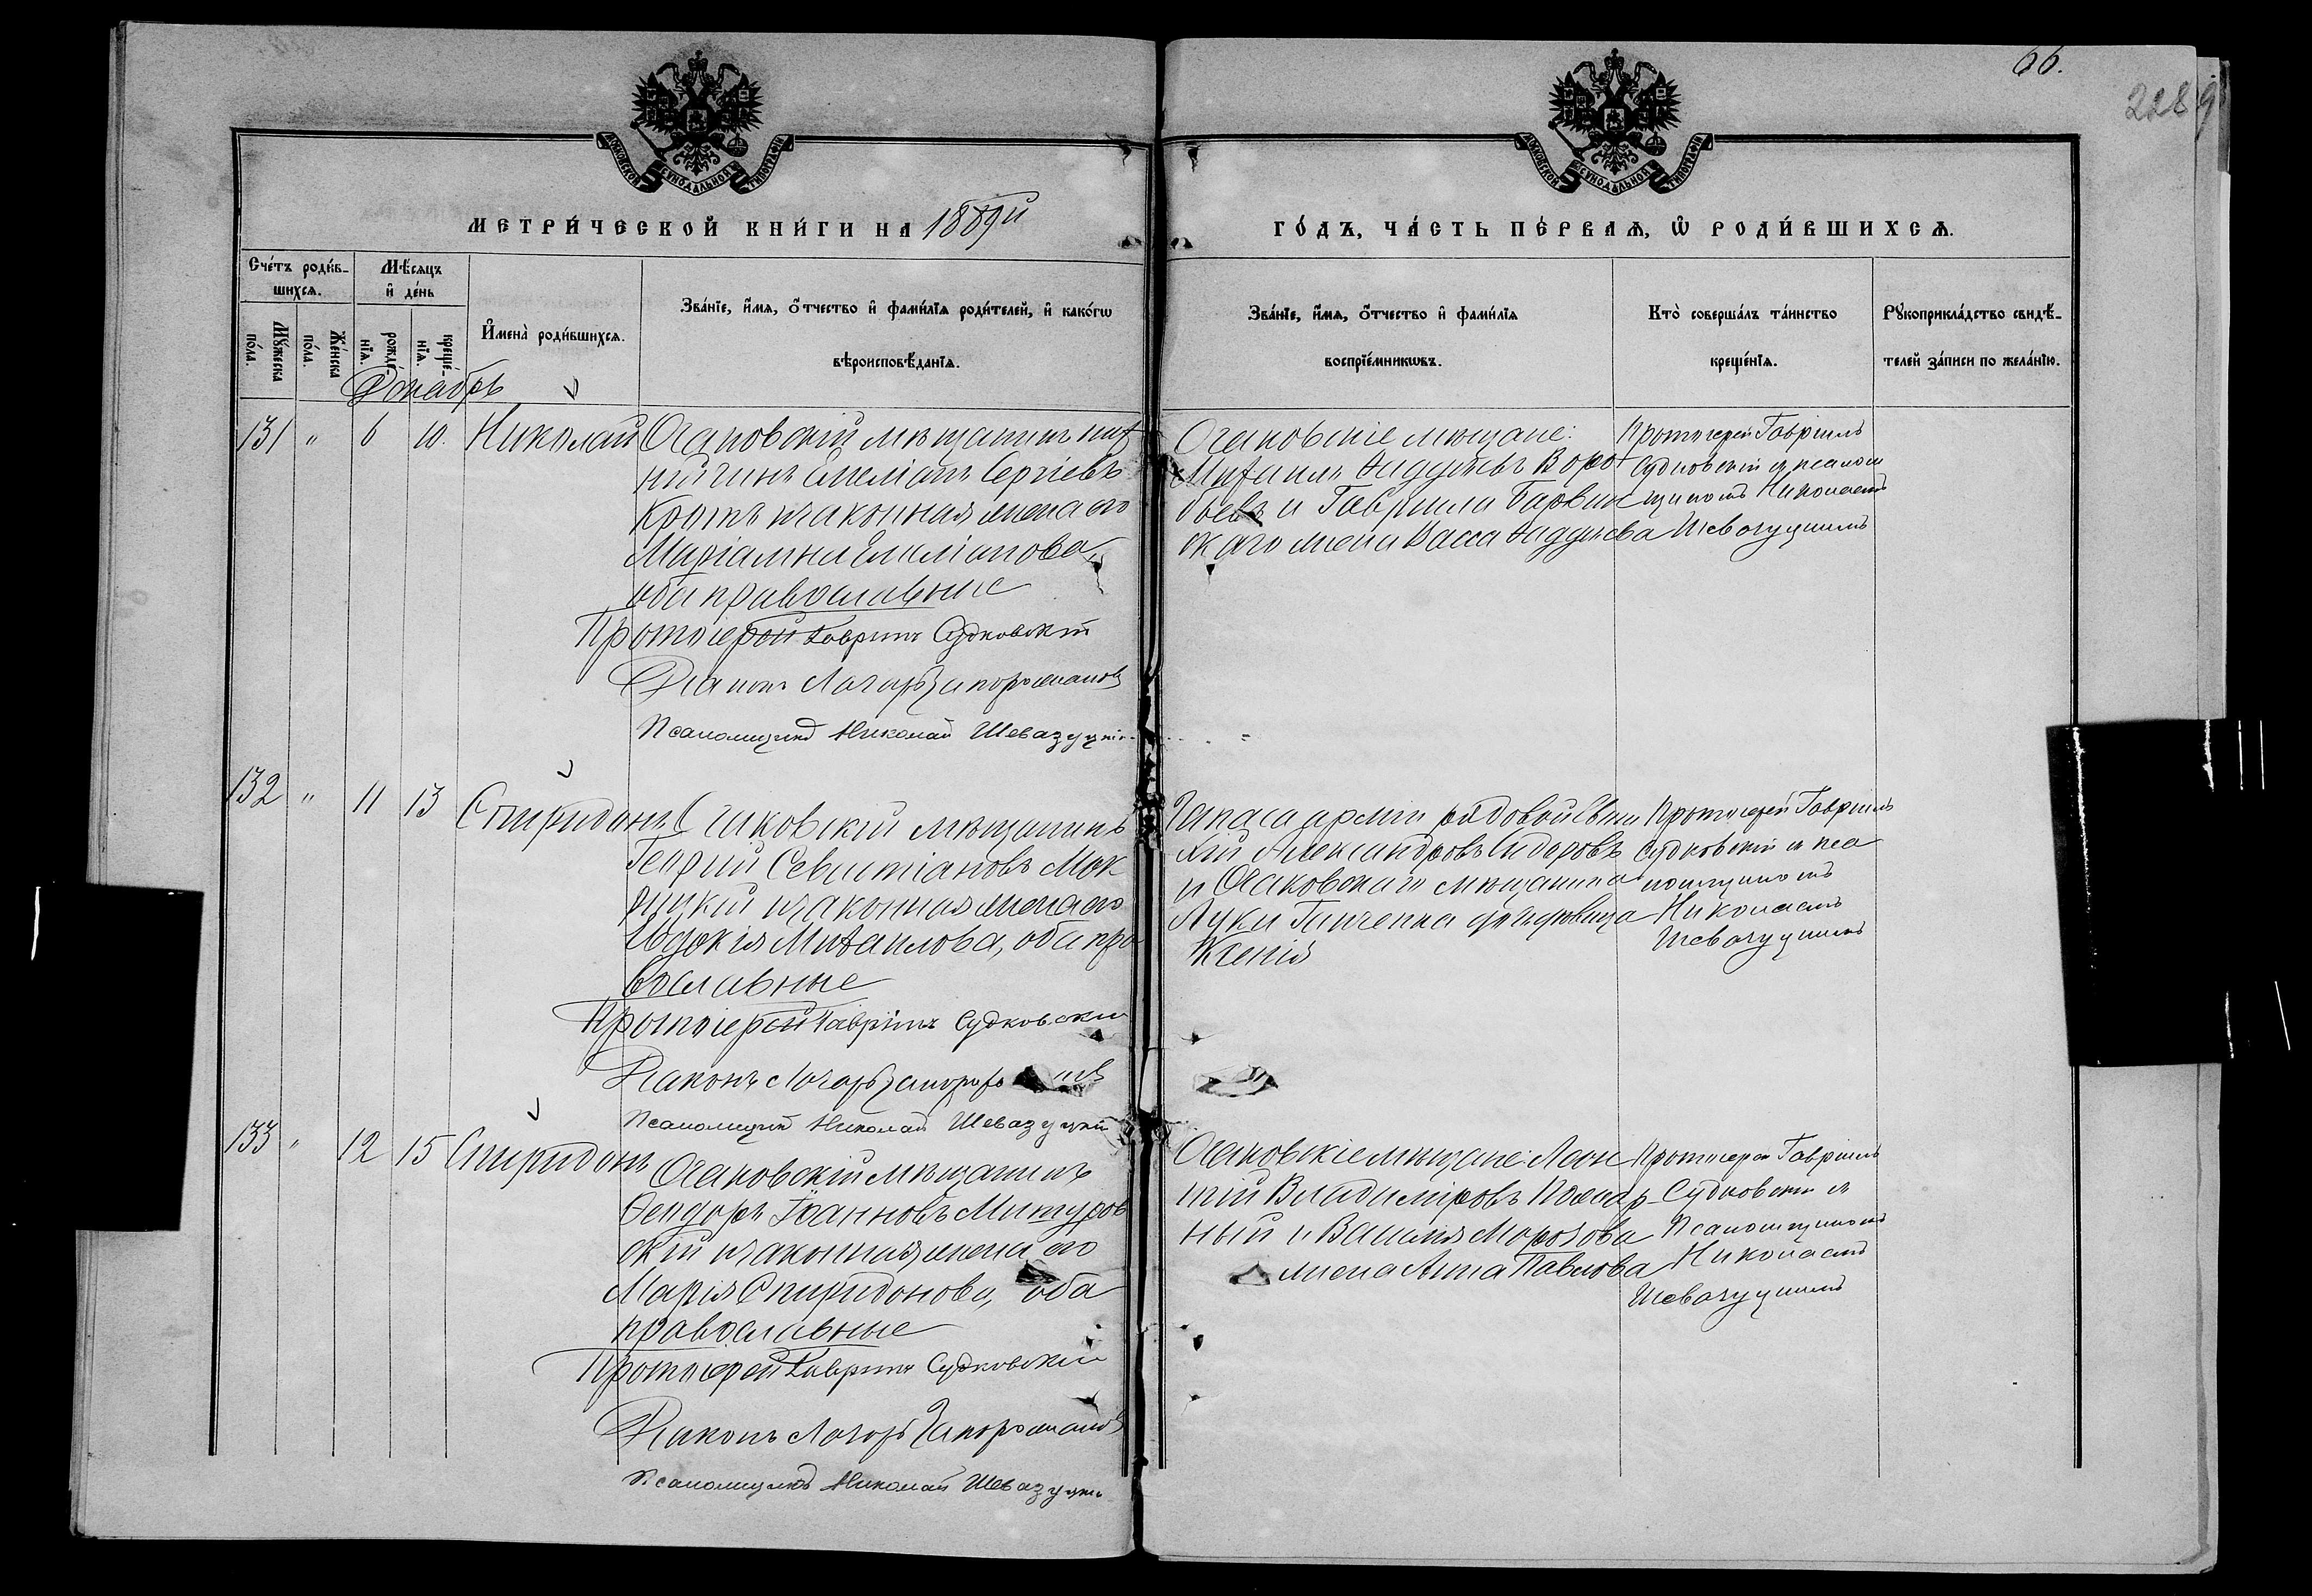 66.
228
МОСКОВСКОЙ СѴНОДАЛЬНОЙ ТИПОГРАФІИ
МОСКОВСКОЙ СѴНОДАЛЬНОЙ ТИПОГРАФІИ
МЕТРИ́ЧЕСКОЙ КНИ́ГИ НА 1889й
ГО́ДЪ, ЧА́СТЬ ПЕ́РВАѦ, Ѿ РОДИ́ВШИХСѦ.
Сче́тъ роди́в-
шихсѧ.
Мѣ́сѧцъ
и҆ де́нь
Мꙋ́жеска
по́ла.
Же́нска
по́ла.
рожде́-
нїѧ.
креще́-
нїѧ.
И҆мена̀ роди́вшихсѧ.
Зва́нїе, и҆́мѧ, ѻ҆́тчество и҆ фами́лїѧ роди́телей, и҆ како́гѡ
вѣроисповѣ́данїѧ.
Зва́нїе, и҆́мѧ, ѻ҆́тчество и҆ фами́лїѧ
воспрїе́мникѡвъ.
Кто̀ соверша́лъ та́инство
креще́нїѧ.
Рꙋкоприкла́дство свидѣ́-
телей за́писи по жела́нїю.
Декабрь
131 " 6 10. Николай Очаковскій мѣщанинъ
чинъ Емеліанъ Сергіевъ
Кротъ и законная жена его
Маріамна Емеліанова
оба православные
Протоіерей Гавріилъ Судковскій
Діаконъ Лазарь Запорожановъ
Псаломщикъ Николай Шевазуцкій
Очаковскіе мѣщане:
Михаилъ Фаддѣевъ Воро
бьевъ и Гавріила Барвин
скаго жена Васса Фаддѣева
Протоіерей Гавріилъ
Судковскій съ псалом
щикомъ Николаемъ
Шевазуцкимъ
132 " 11 13 Спиридонъ Очаковскій мѣщанинъ
Георгій Севастіановъ Мок
рицкій и законная жена его
Евдокія Михаилова, оба пра
вославные
Протоіерей Гавріилъ Судковскій
Діаконъ Лазарь
Псаломщикъ Николай Шевазуцкій
Запаса арміи рядовой
Александровъ Сидоровъ
и Очаковскаго мѣщанина
Луки Ганченка дѣвица
Ксенія
Протоіерей Гавріилъ
Судковскій съ пса
ломщикомъ
Николаемъ
Шевазуцкимъ
133 " 12 15 Спиридонъ Очаковскій мѣщанинъ
Ѳеодоръ Іоанновъ Митуров
скій и законная жена его
Марія Спиридонова, оба
православные
Протоіерей Гавріилъ Судковскій
Діаконъ Лазарь Запорожановъ
Псаломщикъ Николай Шевазуцкій
Очаковскіе мѣщане: Леон
тій Владиміровъ Пожар
ный и Василія Морозова
жена Анна Павлова
Протоіерей Гавріилъ
Судковскій съ
Псаломщикомъ
Николаемъ
Шевазуцкимъ